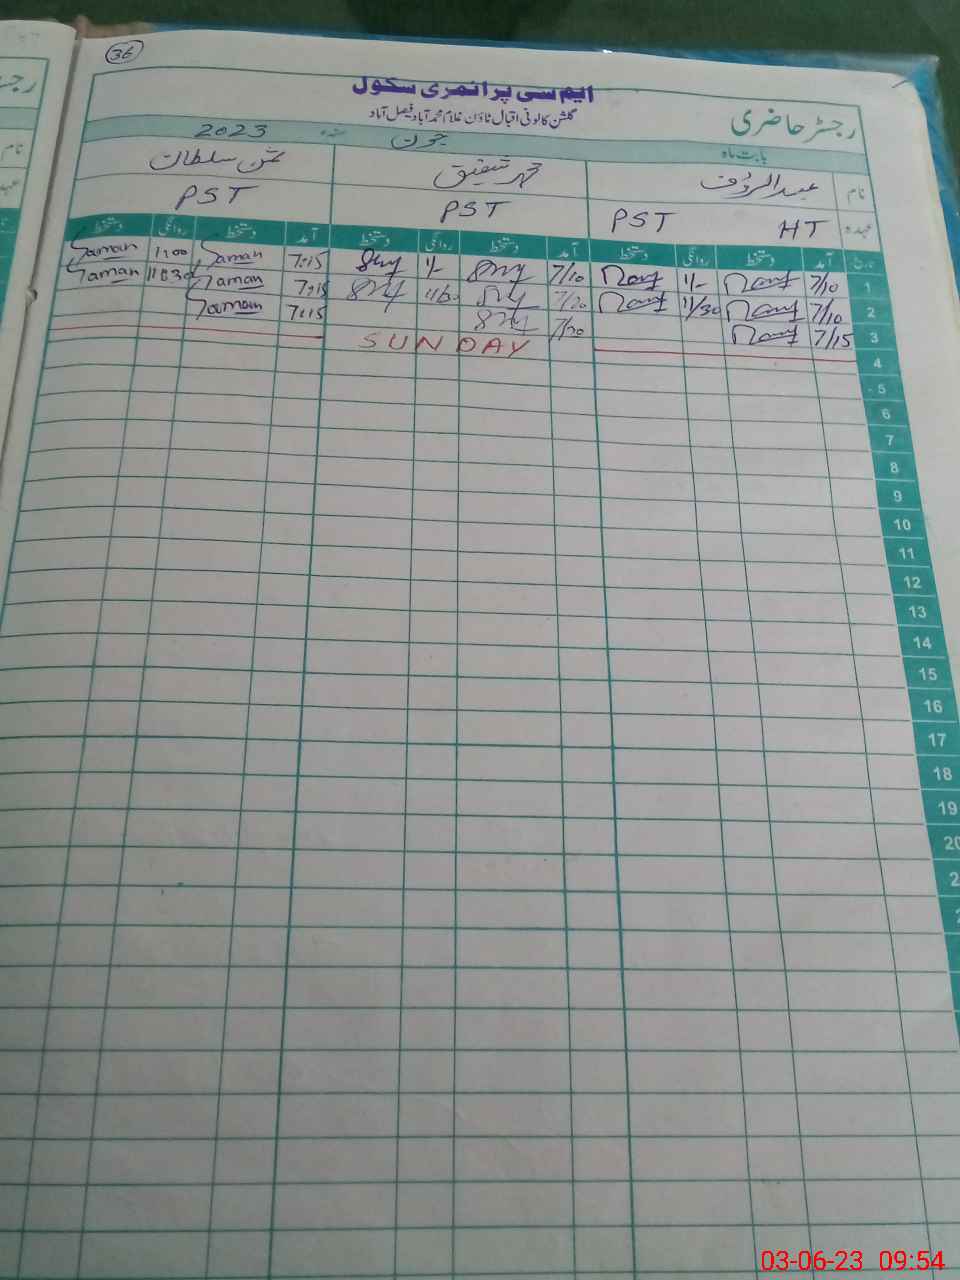 36
ایم سی پرائمری سکول
رجسٹر حاضری
گلشن کالونی اقبال ٹاؤن غلام محمد آباد فیصل آباد
بابت ماہ جون سنہ 2023
نام عبدالرؤف محمد شفیق ثمن سلطان
عہدہ HT PST PST PST
تاریخ آمد دستخط روانگی دستخط آمد دستخط روانگی دستخط آمد دستخط روانگی دستخط
1 7/10 1/- 7/10 1/- 7:15 Saman 1:00 Saman
2 7/10 11/30 7/20 11/30 7:15 Saman 11:30 Saman
3 7/15 7/20 7:15 Saman
4 SUNDAY
5
6
7
8
9
10
11
12
13
14
15
16
17
18
19
20
03-06-23 09:54